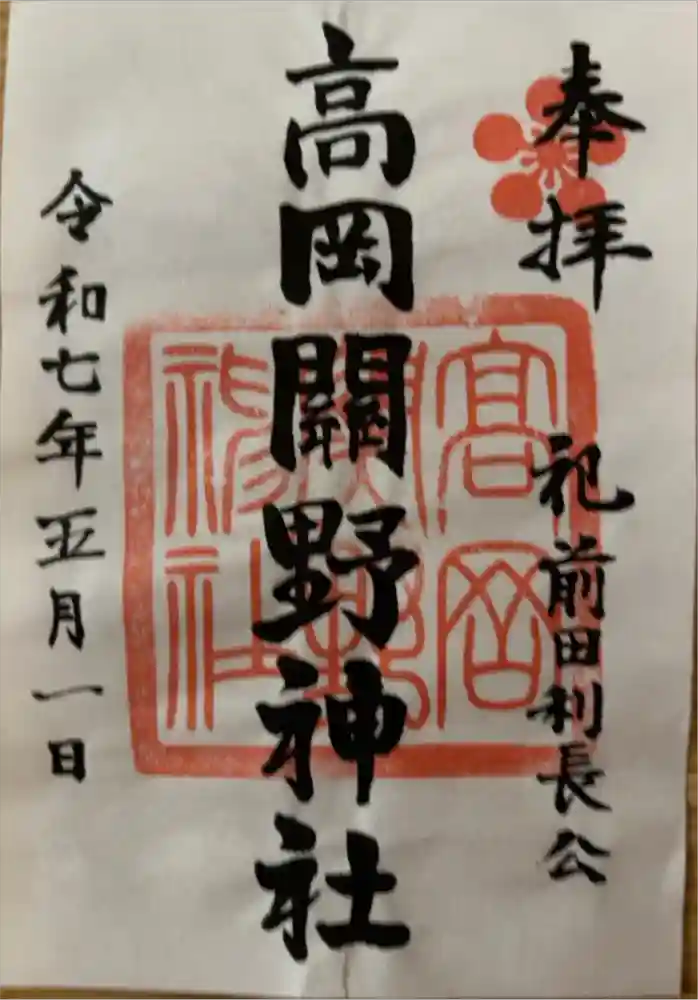 奉拝
祀 前田利長公
高岡關野神社
令和七年五月一日
高岡
關野
神社